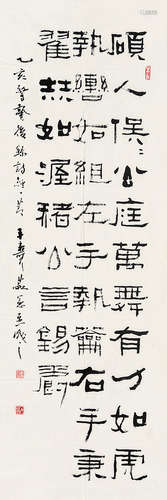 碩人俁〻公庭萬舞有力如虎
執轡如組左手執籥右手秉
翟赫如渥赭公言錫爵
乙亥驚蟄後